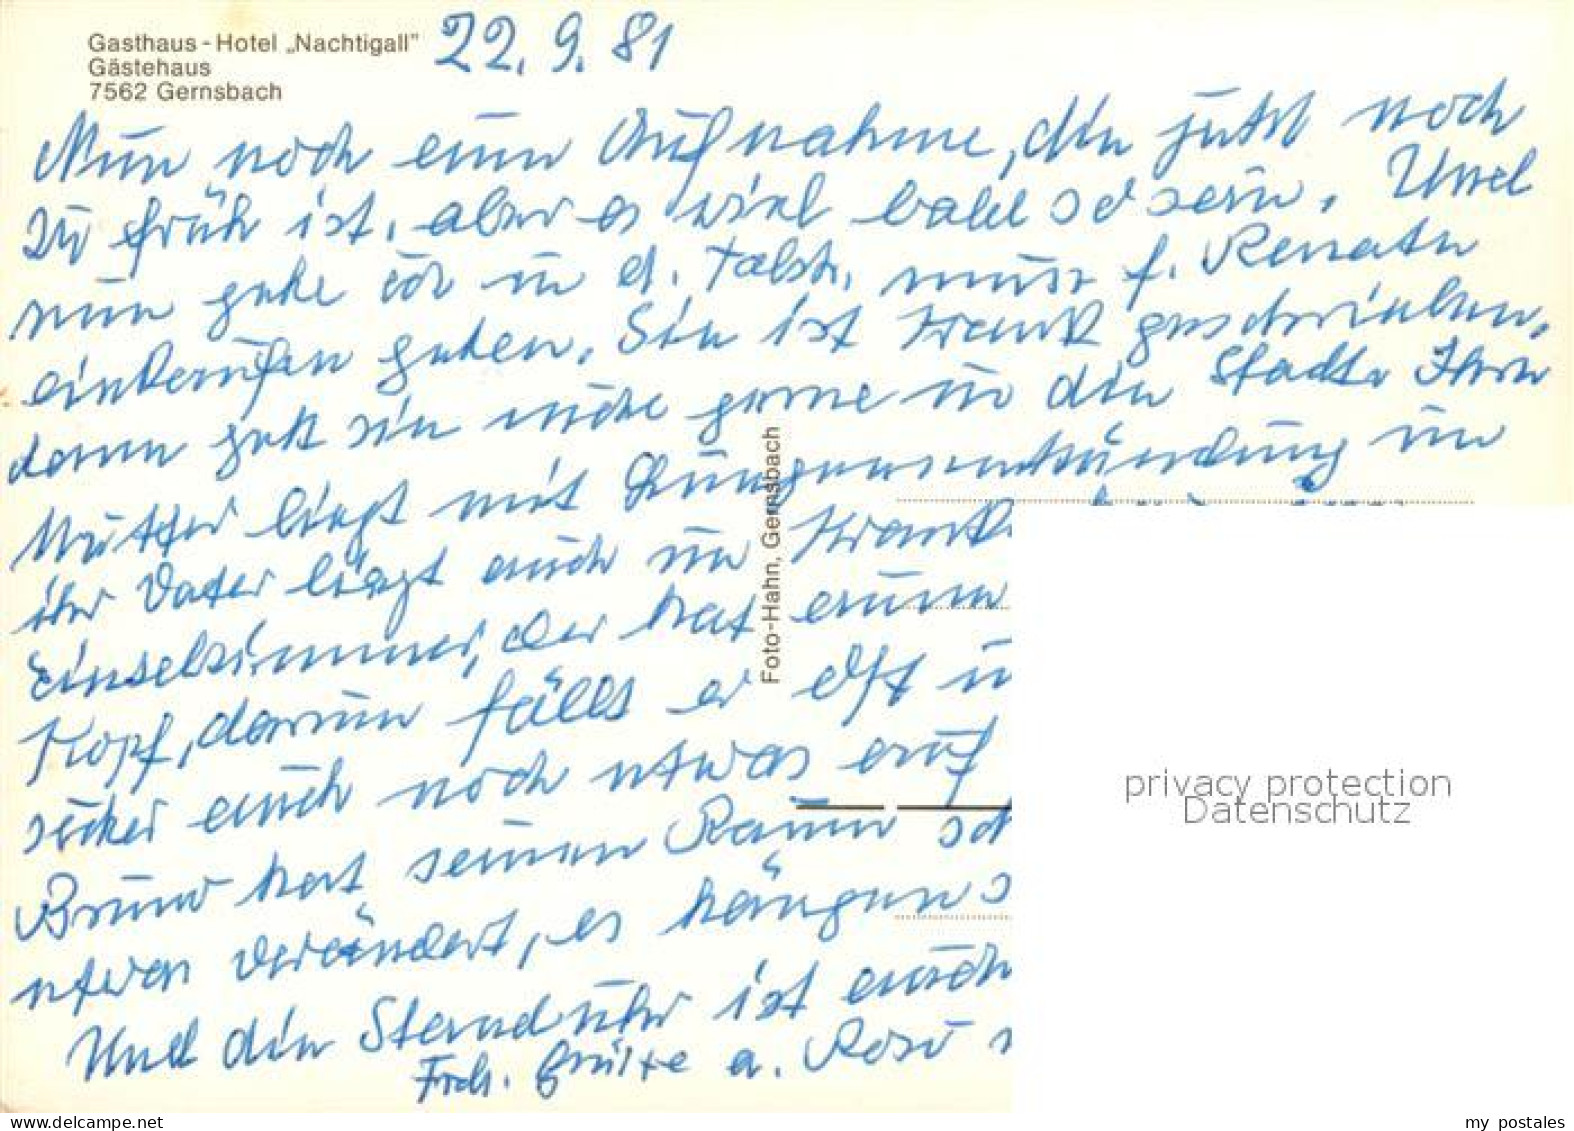 Gasthaus-Hotel „Nachtigall"
Gästehaus
7562 Gernsbach
22.9.81
Nun noch eine Aufnahme, die jetzt noch
zu früh ist, aber es wird bald so sein. Und
nun gehe ich in d. Talstr. muss f. Renate
einkaufen gehen. Sie ist krank geschrieben,
dann geht sie nicht gerne in die Stadt. Ihre
Mutter liegt mit Lungenentzündung im
ihr Vater liegt auch im Krank
Einzelzimmer, der hat einen
Kopf, darum fällt er oft
sicher auch noch etwas auf
Bruno hat seinen Raum
etwas verändert, es hängen
Und die Standuhr ist auch
Frdl. Grüße a. Rosi
Foto-Hahn, Gernsbach
privacy protection
Datenschutz
my postales